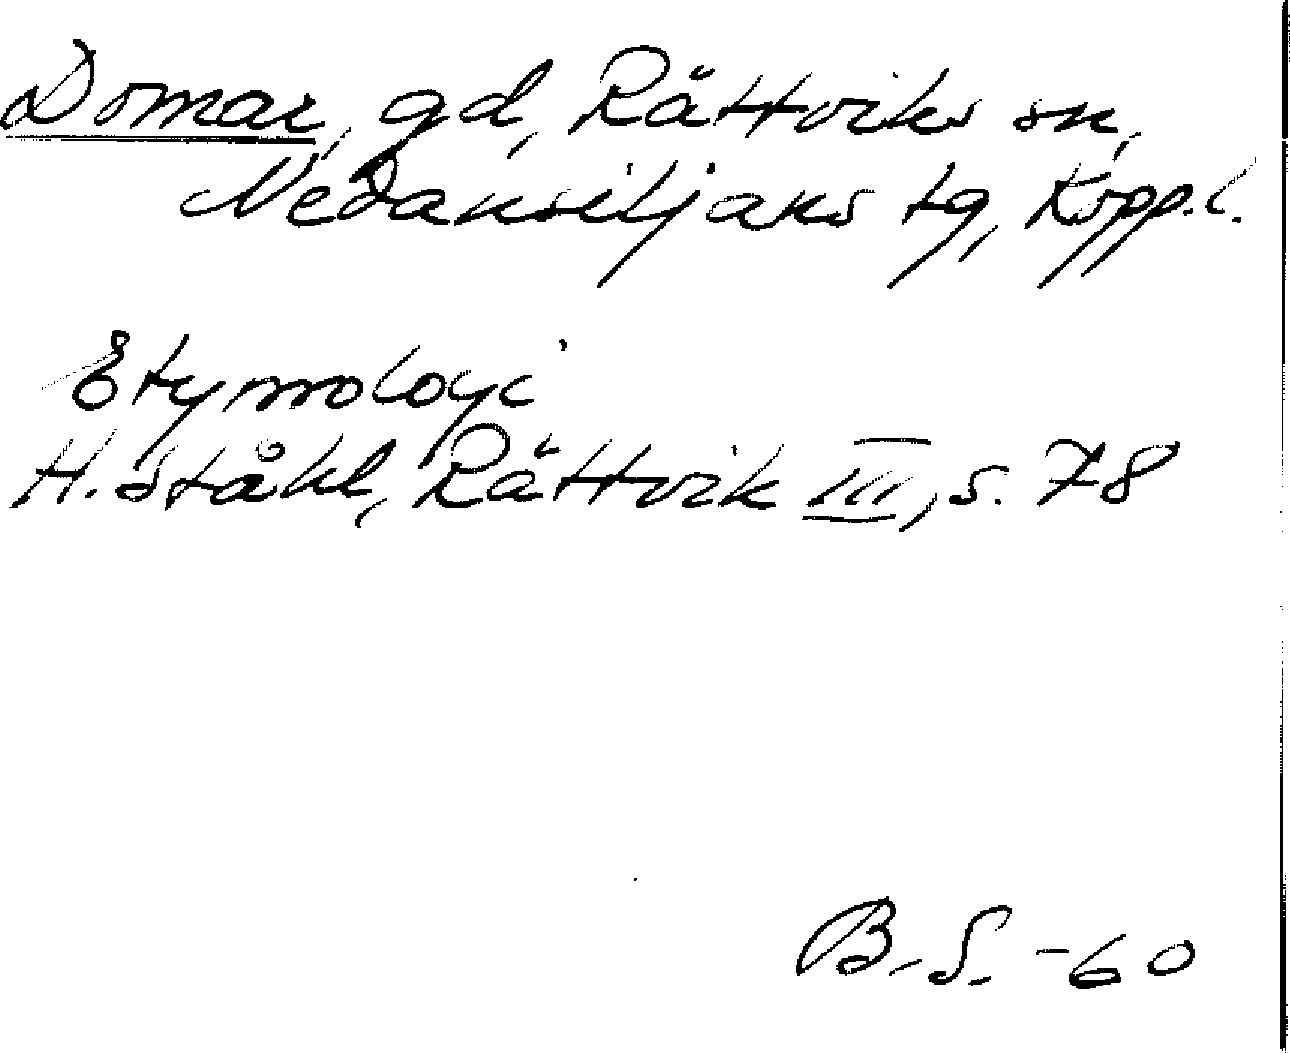 Domar, gd, Rättviks sn,
Nedansiljans tg, Kopp.l.
Etymologi
H. Ståhl, Rättvik III, s. 78
B.S. -60